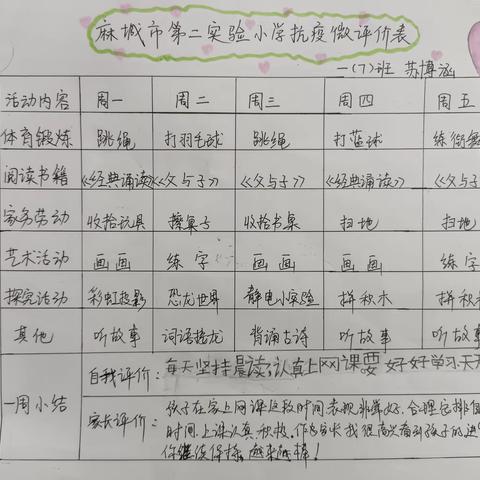 麻城市第二实验小学抗疫微评价表
一(7)班 苏博涵
活动内容 周一 周二 周三 周四 周五
体育锻炼 跳绳 打羽毛球 跳绳 打蓝球 练街舞
阅读书籍 《经典诵读》 《父与子》 《父与子》 《经典诵读》 《父与子
家务劳动 收拾玩具 擦桌子 收拾书桌 扫地 扫地
艺术活动 画画 练字 画画 画画 练字
探究活动 彩虹投影 恐龙世界 静电小实验 拼积木 拼积
其他 听故事 词语接龙 背诵古诗 听故事 听故事
一周小结
自我评价: 每天坚持晨读,认真上网课要好好学习天天
家长评价: 孩子在家上网课这段时间,表现非常好,合理安排
时间,上课认真、积极。作为家长我很高兴看到孩子的进
你继续保持,越来越棒!